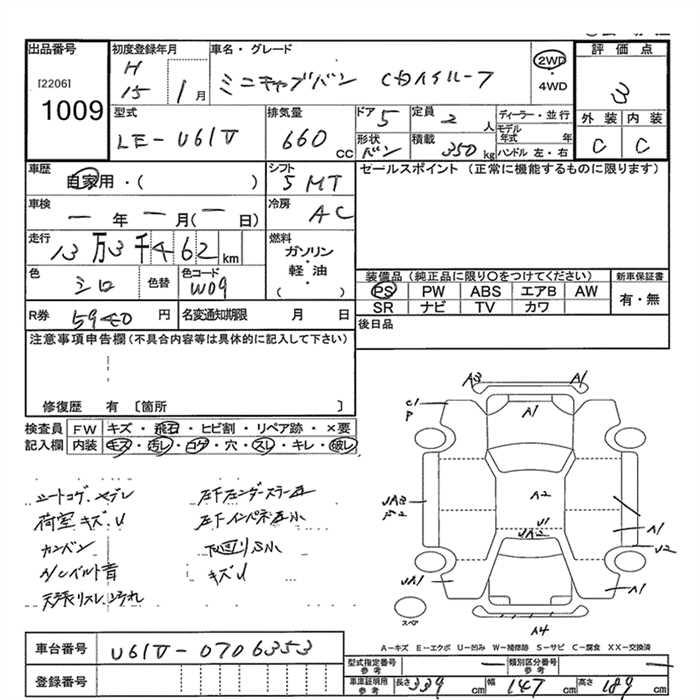 出品番号
[2206]
1009
初度登録年月
H
15 1 月
車名・グレード
ミニキャブバン CDハイルーフ
2WD
・
4WD
評価点
3
外装 内装
C C
型式
LE-U61V
排気量
660 CC
ドア
5
定員
2 人
形状
バン
積載
350 kg
ディーラー・並行
モデル年式 年
ハンドル 左・右
車歴
自家用・( )
シフト
5 MT
セールスポイント (正常に機能するものに限ります)
車検
— 年 — 月(— 日)
冷房
AC
走行
13万3千462 km
燃料
ガソリン
・
軽油
( ・ )
色
シロ
色替
色コード
W09
装備品 (純正品に限り〇をつけてください)
PS PW ABS エアB AW
SR ナビ TV カワ
新車保証書
有・無
R券
5940 円
名変通知期限 月 日
後日品
注意事項申告欄 (不具合内容等は具体的に記入して下さい)
修復歴 有 〔箇所 〕
検査員記入欄
FW キズ・飛石・ヒビ割・リペア跡・×要
内装 キズ・汚レ・コゲ・穴・スレ・キレ・破レ
シートコゲ、ヤブレ
荷室キズ、U
カンバン
A/Cベルト音
天張リスレ、ヨゴレ
左Fインパネ左小
下廻りS小
キズU
A3 A1
C1
P
A1
A2
U1
UA2
A1
U2
UA1
A1
スペア
A4
A-キズ E-エクボ U-凹み W-補修跡 S-サビ C-腐食 XX-交換済
車台番号
U61V-0706353
登録番号
型式指定番号
参考
—
類別区分番号
参考
—
車庫証明用
参考
長さ 339 cm 幅 147 cm 高さ 189 cm